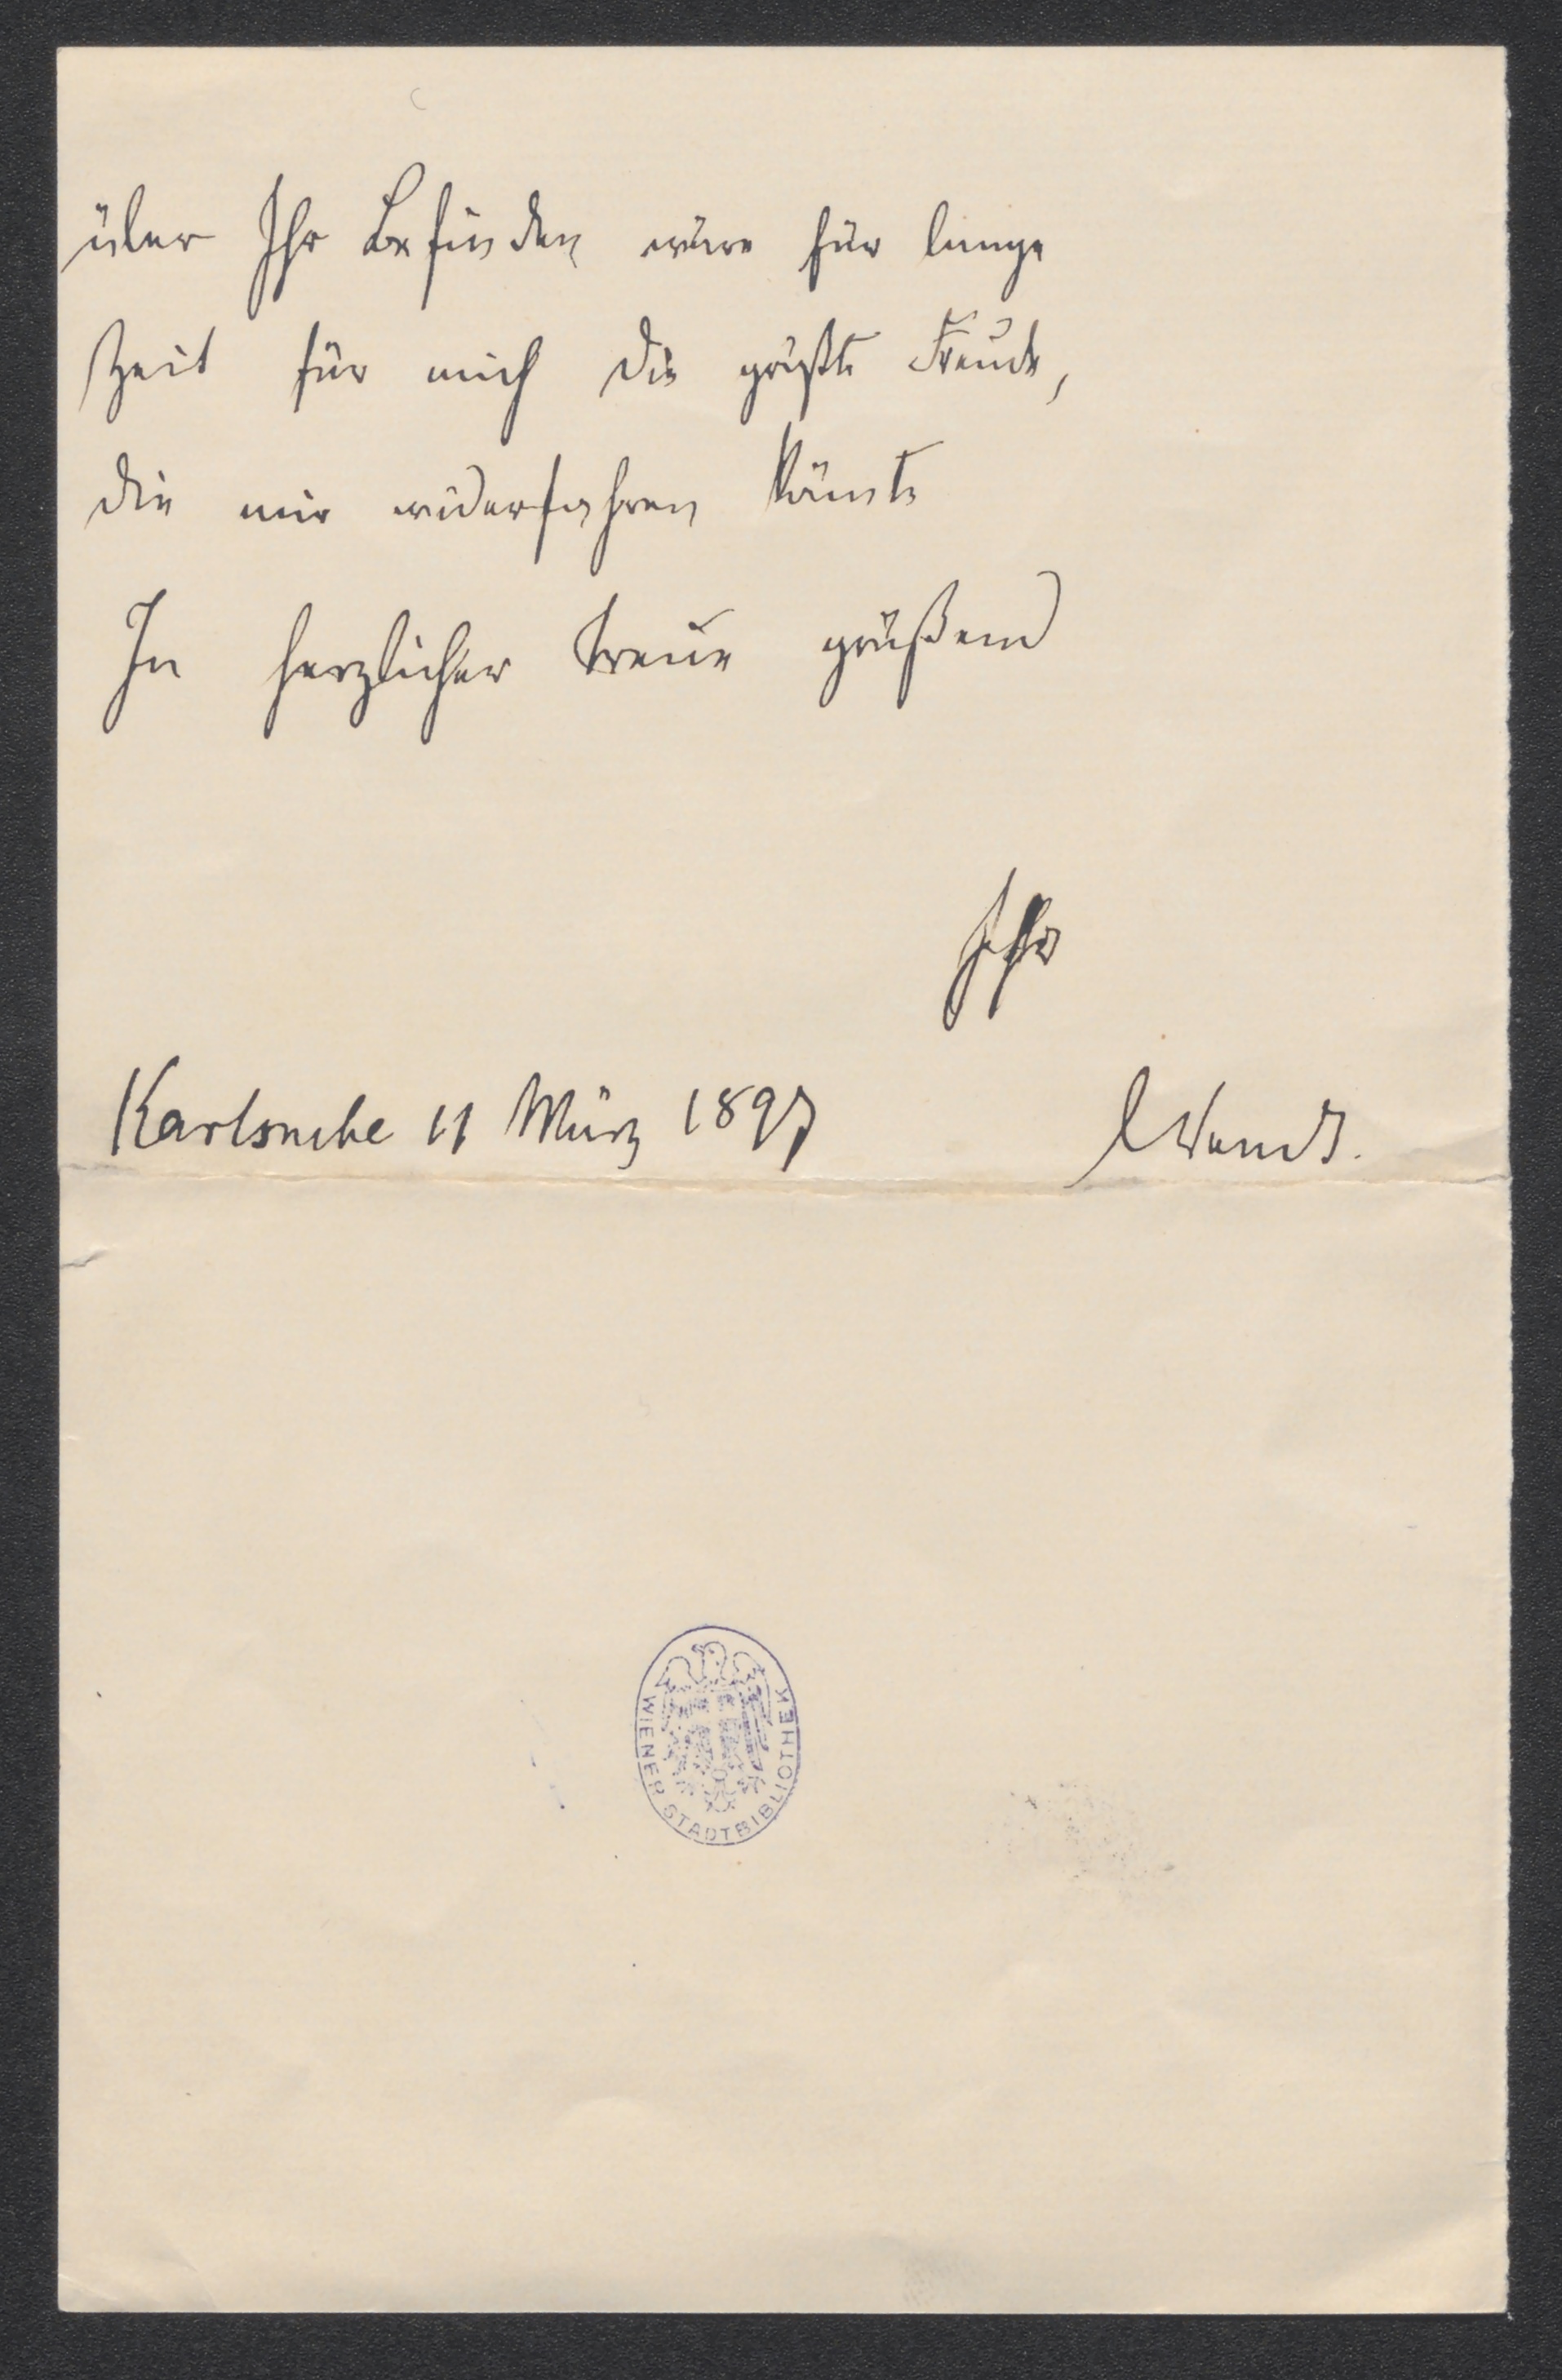 über Ihr Befinden wäre für lange
Zeit für mich die größte Freude,
die mir widerfahren könnte
In herzlicher Treue grüßend
Ihr
Karlsruhe 11 März 1897
GWendt.
WIENER STADTBIBLIOTHEK